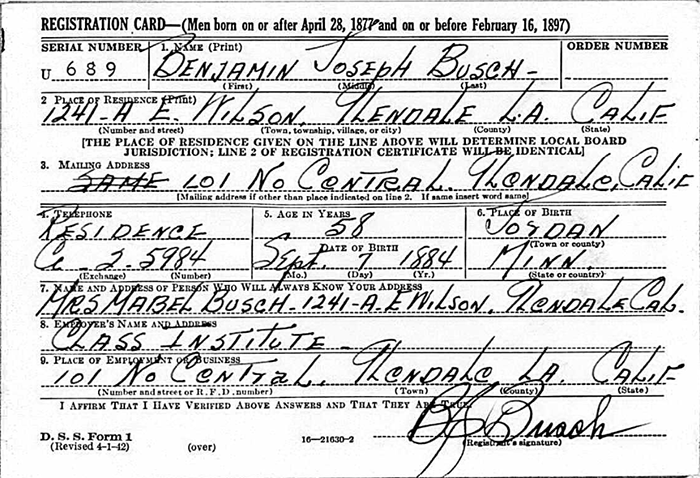 REGISTRATION CARD—(Men born on or after April 28, 1877 and on or before February 16, 1897)
SERIAL NUMBER 1. NAME (Print) ORDER NUMBER
U 689 BENJAMIN JOSEPH BUSCH -
(First) (Middle) (Last)
2 PLACE OF RESIDENCE (Print)
1241-A E. WILSON, GLENDALE L.A. CALIF
(Number and street) (Town, township, village, or city) (County) (State)
[THE PLACE OF RESIDENCE GIVEN ON THE LINE ABOVE WILL DETERMINE LOCAL BOARD
JURISDICTION; LINE 2 OF REGISTRATION CERTIFICATE WILL BE IDENTICAL]
3. MAILING ADDRESS
SAME 101 NO CENTRAL. GLENDALE, CALIF
[Mailing address if other than place indicated on line 2. If same insert word same]
4. TELEPHONE 5. AGE IN YEARS 6. PLACE OF BIRTH
RESIDENCE 58 JORDAN
DATE OF BIRTH (Town or county)
2-5984 Sept. 7 1884 MINN.
(Exchange) (Number) (Mo.) (Day) (Yr.) (State or country)
7. NAME AND ADDRESS OF PERSON WHO WILL ALWAYS KNOW YOUR ADDRESS
MRS MABEL BUSCH - 1241-A. E WILSON, GLENDALE CAL.
8. EMPLOYER'S NAME AND ADDRESS
CLASS INSTITUTE -
9. PLACE OF EMPLOYMENT OR BUSINESS
101 NO CENTRAL, GLENDALE L.A. CALIF
(Number and street or R. F. D. number) (Town) (County) (State)
I AFFIRM THAT I HAVE VERIFIED ABOVE ANSWERS AND THAT THEY ARE TRUE.
B J Busch
D. S. S. Form 1 16—21630-2 (Registrant's signature)
(Revised 4-1-42) (over)